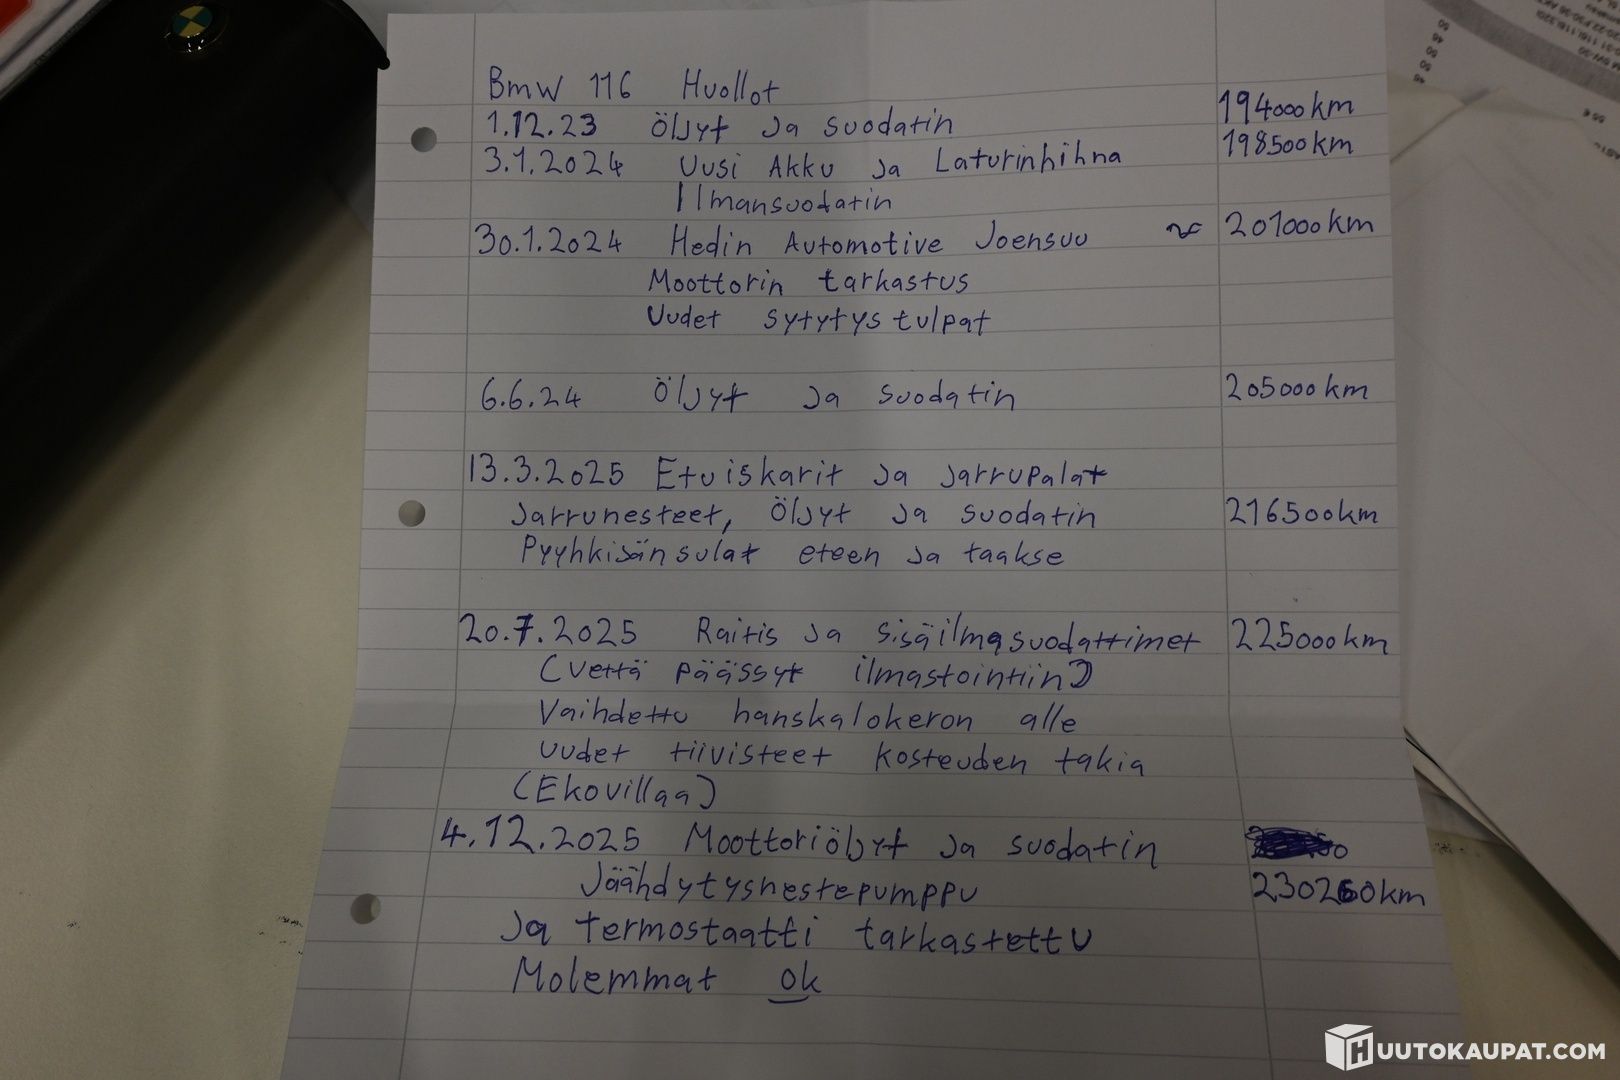 Bmw 116 Huollot
1.12.23 Öljyt ja suodatin 194000km
3.1.2024 Uusi Akku ja Laturinhihna 198500km
Ilmansuodatin
30.1.2024 Hedin Automotive Joensuu ~ 201000km
Moottorin tarkastus
Uudet sytytystulpat
6.6.24 Öljyt ja suodatin 205000km
13.3.2025 Etuiskarit ja jarrupalat
Jarrunesteet, öljyt ja suodatin 216500km
Pyyhkisänsulat eteen ja taakse
20.7.2025 Raitis ja sisäilmasuodattimet 225000km
(vettä päässyt ilmastointiin)
Vaihdettu hanskalokeron alle
uudet tiivisteet kosteuden takia
(Ekovillaa)
4.12.2025 Moottoriöljyt ja suodatin
Jäähdytysnestepumppu 230260km
Ja termostaatti tarkastettu
Molemmat ok
HUUTOKAUPAT.COM